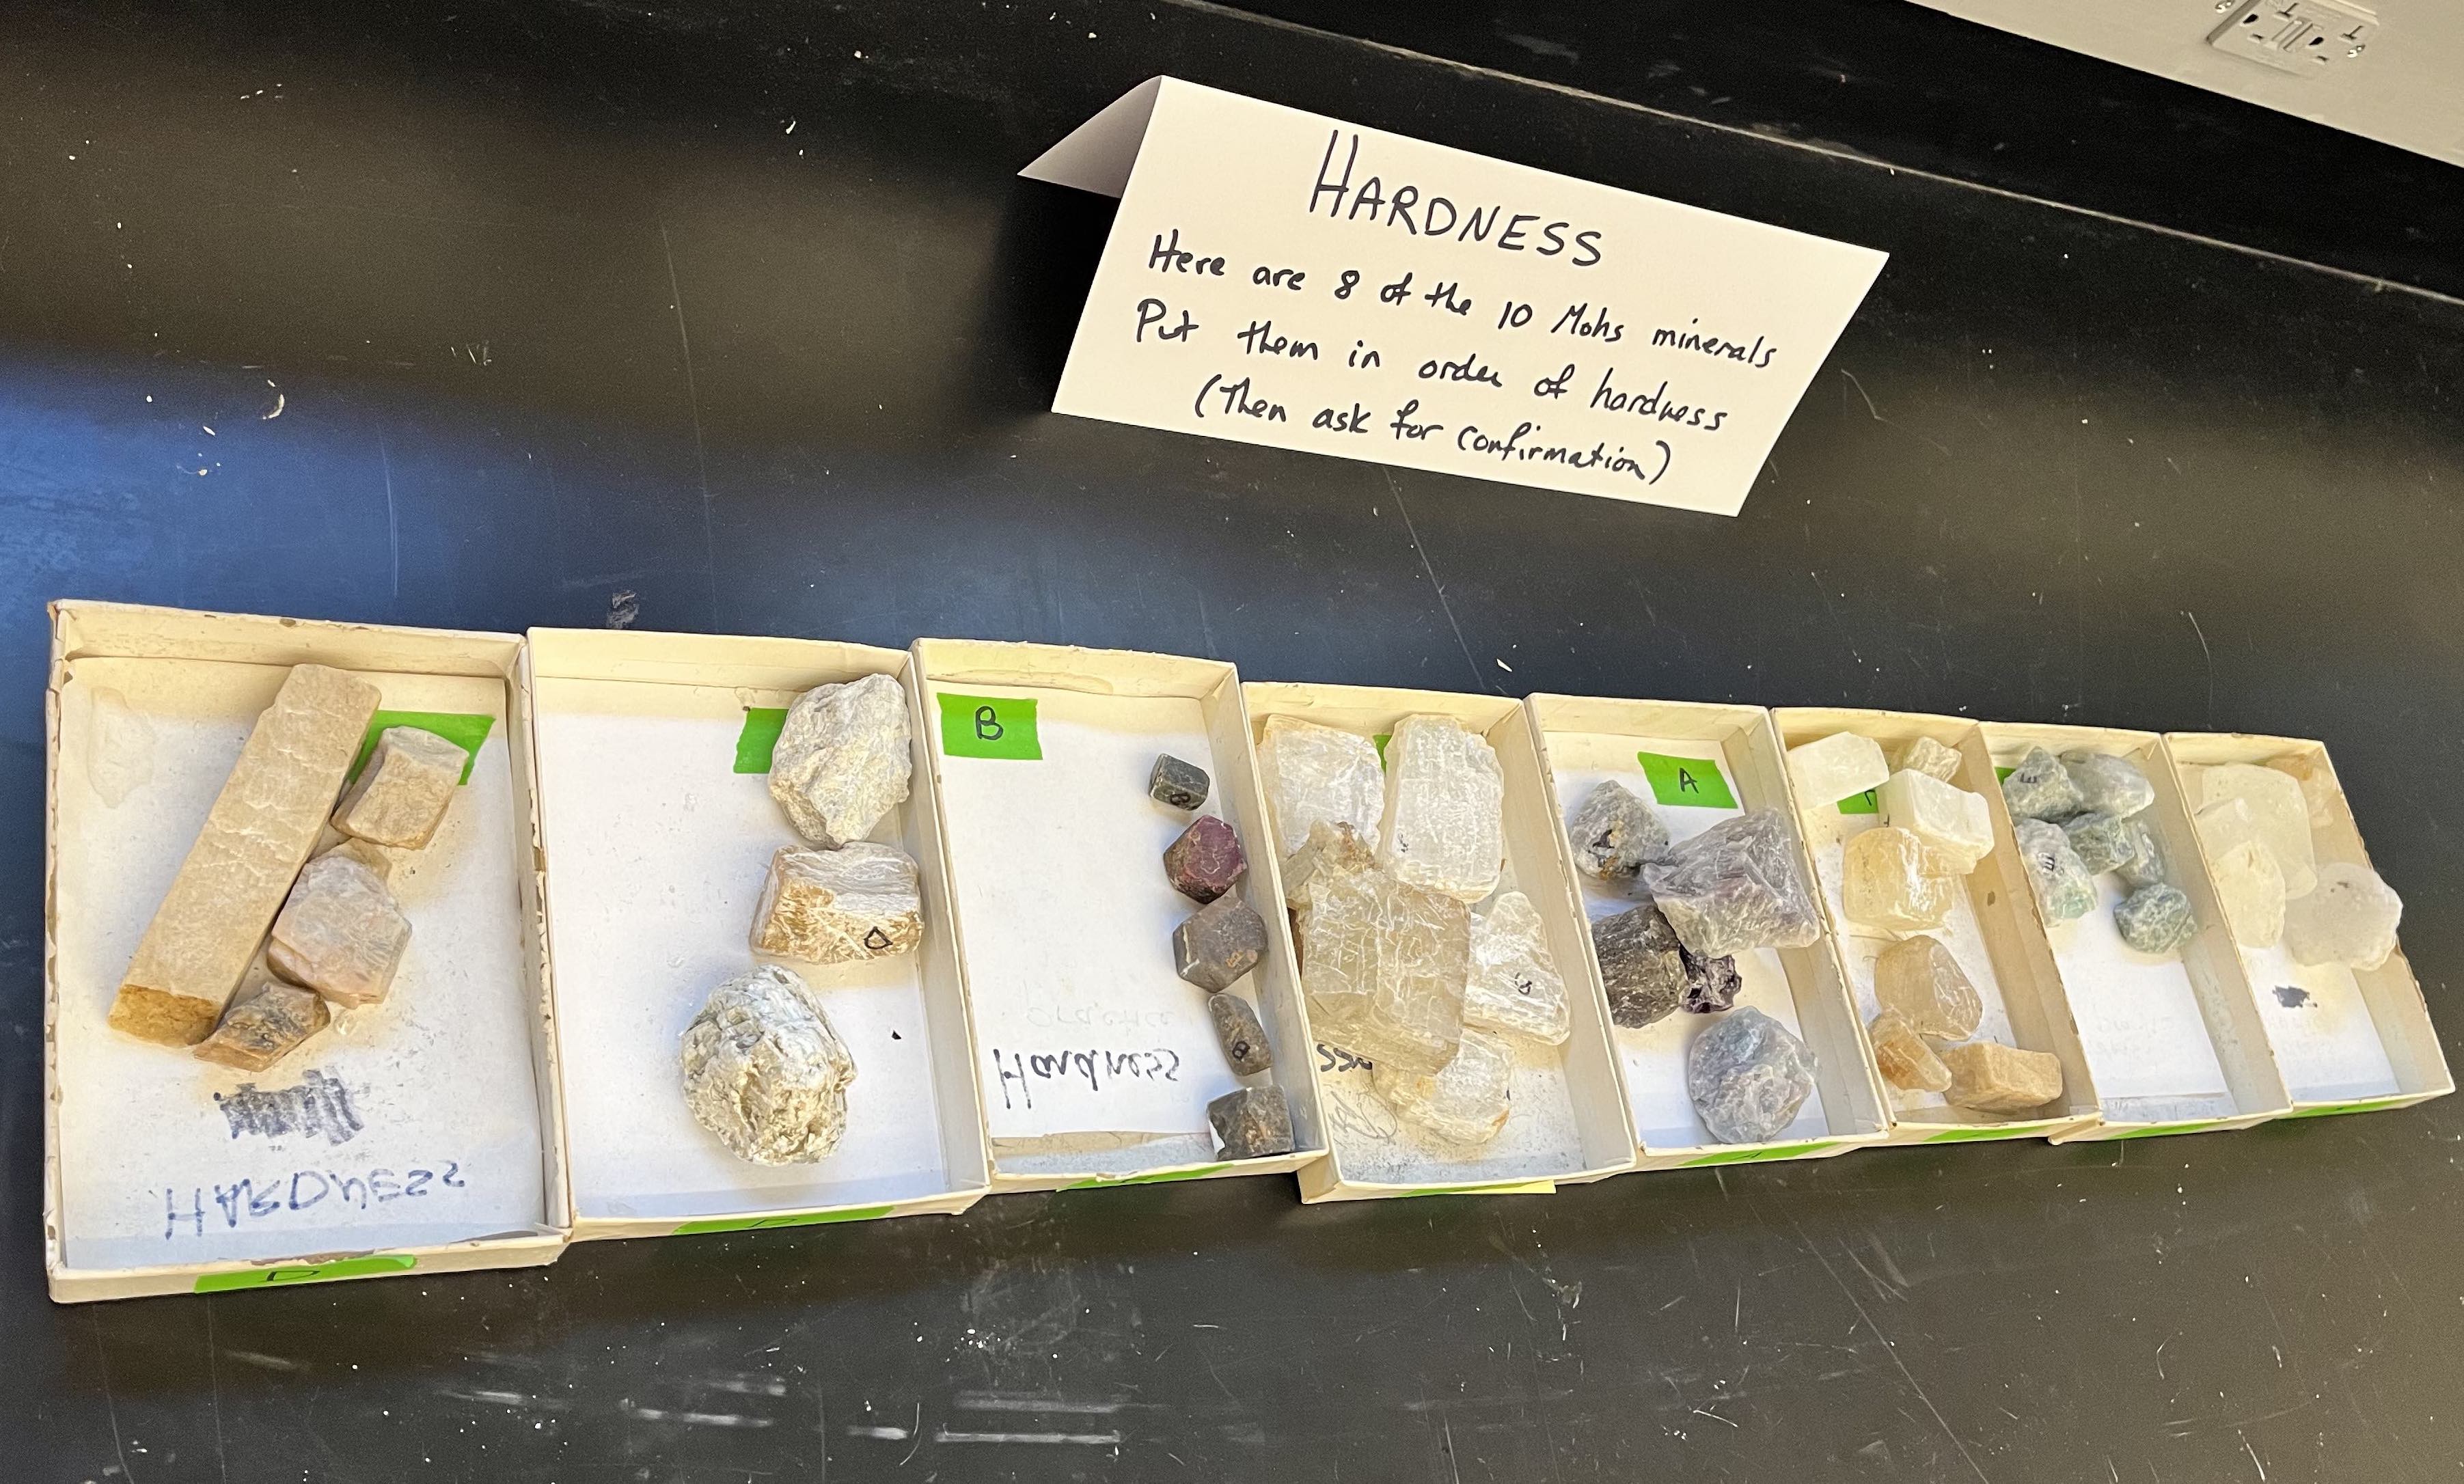 HARDNESS
Here are 8 of the 10 Mohs minerals
Put them in order of hardness
(Then ask for confirmation)
B
A
D
B
B
B
E
E
Hardness
HARDNESS
D